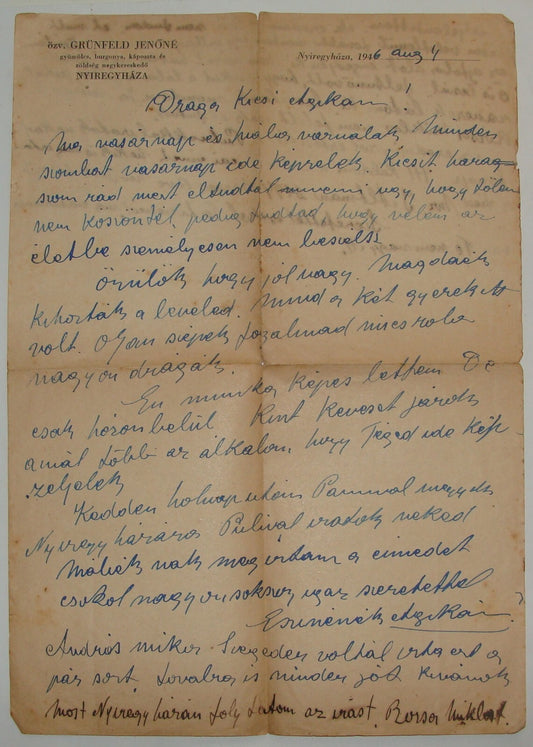 özv. GRÜNFELD JENŐNÉ
gyümölcs, burgonya, káposzta és
zöldség nagykereskedő
NYIREGYHÁZA
Nyiregyháza, 1946 aug 4
Draga Kicsi !
Ma vasarnap és hiába varnalak Minden
szombat vasarnap ide kepzelek. Kicsit harag-
szom rád mert eltudtál menni ugy, hogy tölem
nem köszöntél pedig tudtad hogy velem az
életbe személyesen nem beszélsz
Örülök hogy jól vagy. Magdáék
kihozták a leveled. Mind a két gyerek itt
volt. Olyan szépek fogalmad nincs rola
nagyon drágák.
En munka képes lettem De
csak házon belül Kint keveset járok
annál többi az alkalom, hogy Téged ide kép-
zeljelek
Kedden holnapután megyek
Nyiregyházára iratok neked
nak megirtam a cimedet
csokol nagyon sokszor igaz szeretettel

András mikor Szegeden voltál irta ezt a
pár sort Tovabra is minden jót kivánok
most Nyiregyházán az irást. Borsa Miklos.